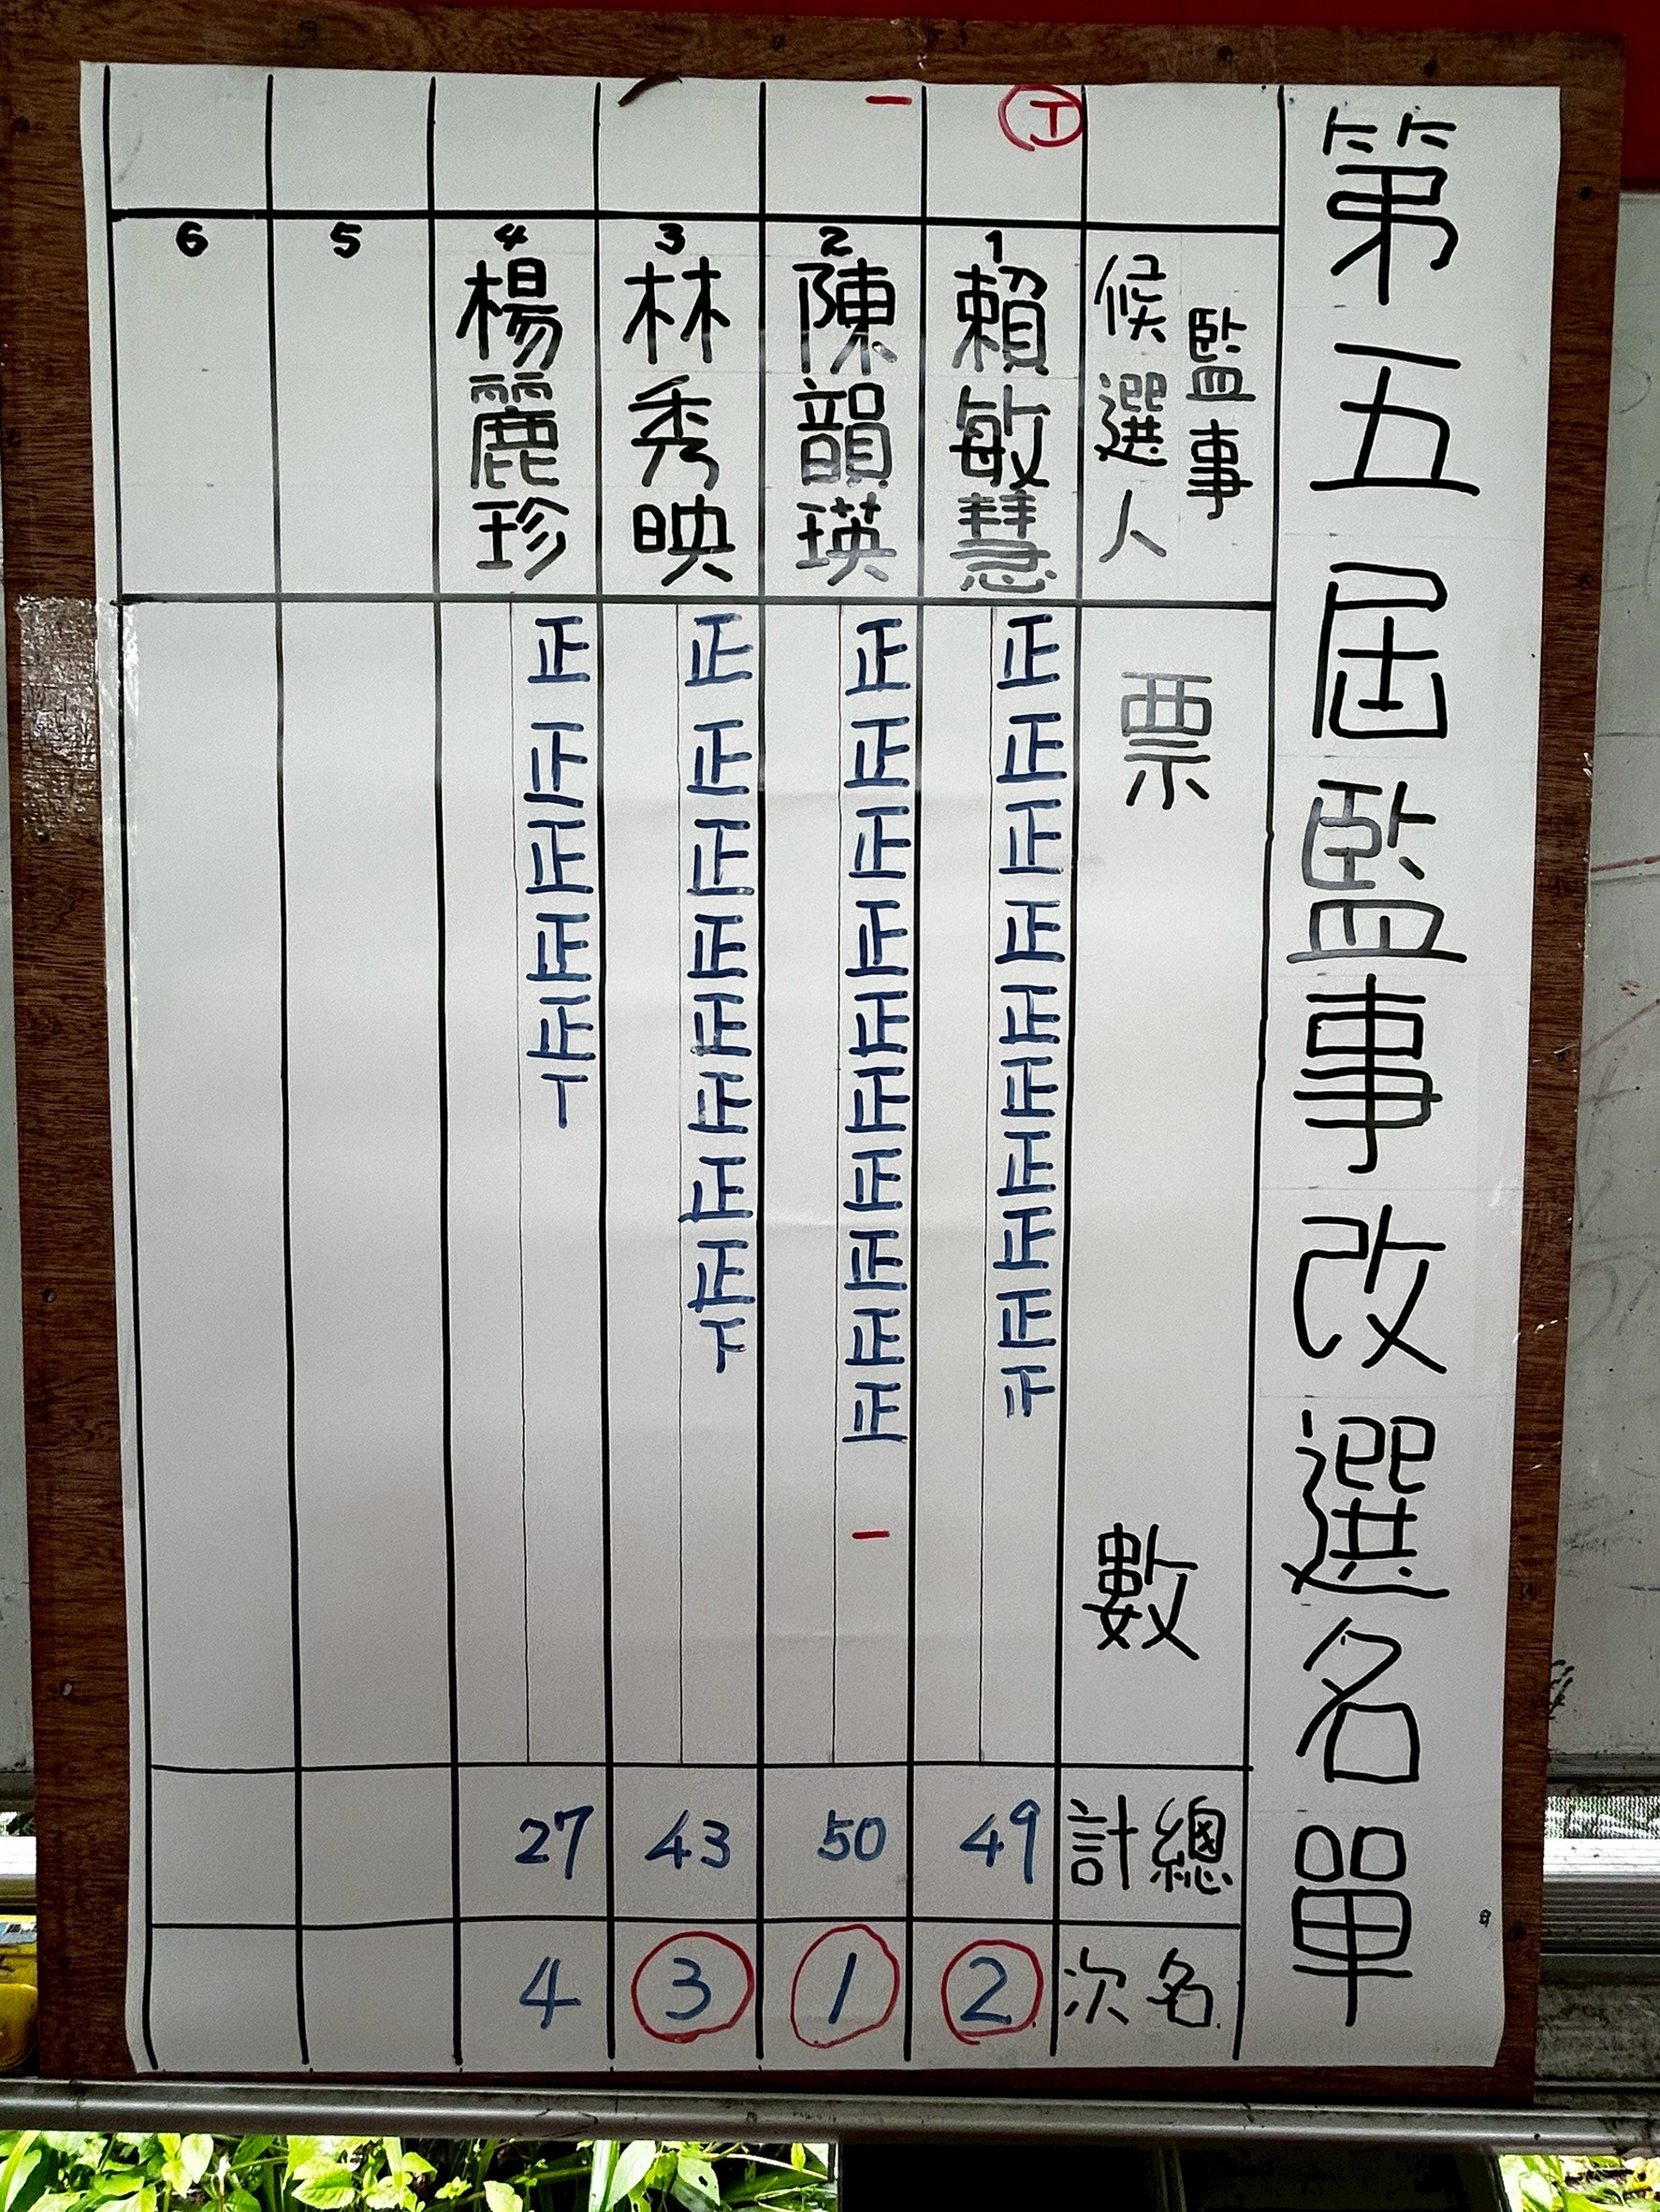 第五屆監事改選名單
監事
候選人
票數
總計
名次
丅
1
賴敏慧
正正正正正正正正正
49
2
一
2
陳韻瑛
正正正正正正正正正正
一
50
1
3
林秀映
正正正正正正正正
43
3
4
楊麗珍
正正正正正丅
27
4
5
6